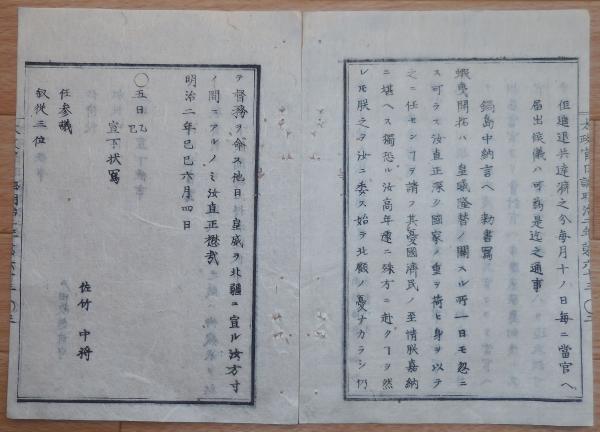 但進退共達濟之分毎月十ノ日毎ニ當官ヘ
届出候儀ハ可爲是迄之通事
鍋島中納言ヘ勅書寫
蝦夷開拓ハ 皇威隆替ノ關スル所一日モ忽ニ
ス可ラス汝直正深ク國家ノ重ヲ荷ヒ身ヲ以テ
之ニ任センヿヲ請フ其憂國濟民ノ至情朕嘉納
ニ堪ヘス獨恐ル汝高年遽ニ殊方ニ赴クヿヲ然
レモ朕之ヲ汝ニ委ス始テ北顧ノ憂ナカラン仍
テ督務ヲ命ス他日 皇威ヲ北疆ニ宣ル汝方寸
ノ間ニアルノミ汝直正懋哉
明治二年己巳六月四日
〇五日乙巳
宣下状寫
佐竹 中將
任参議
叙從三位